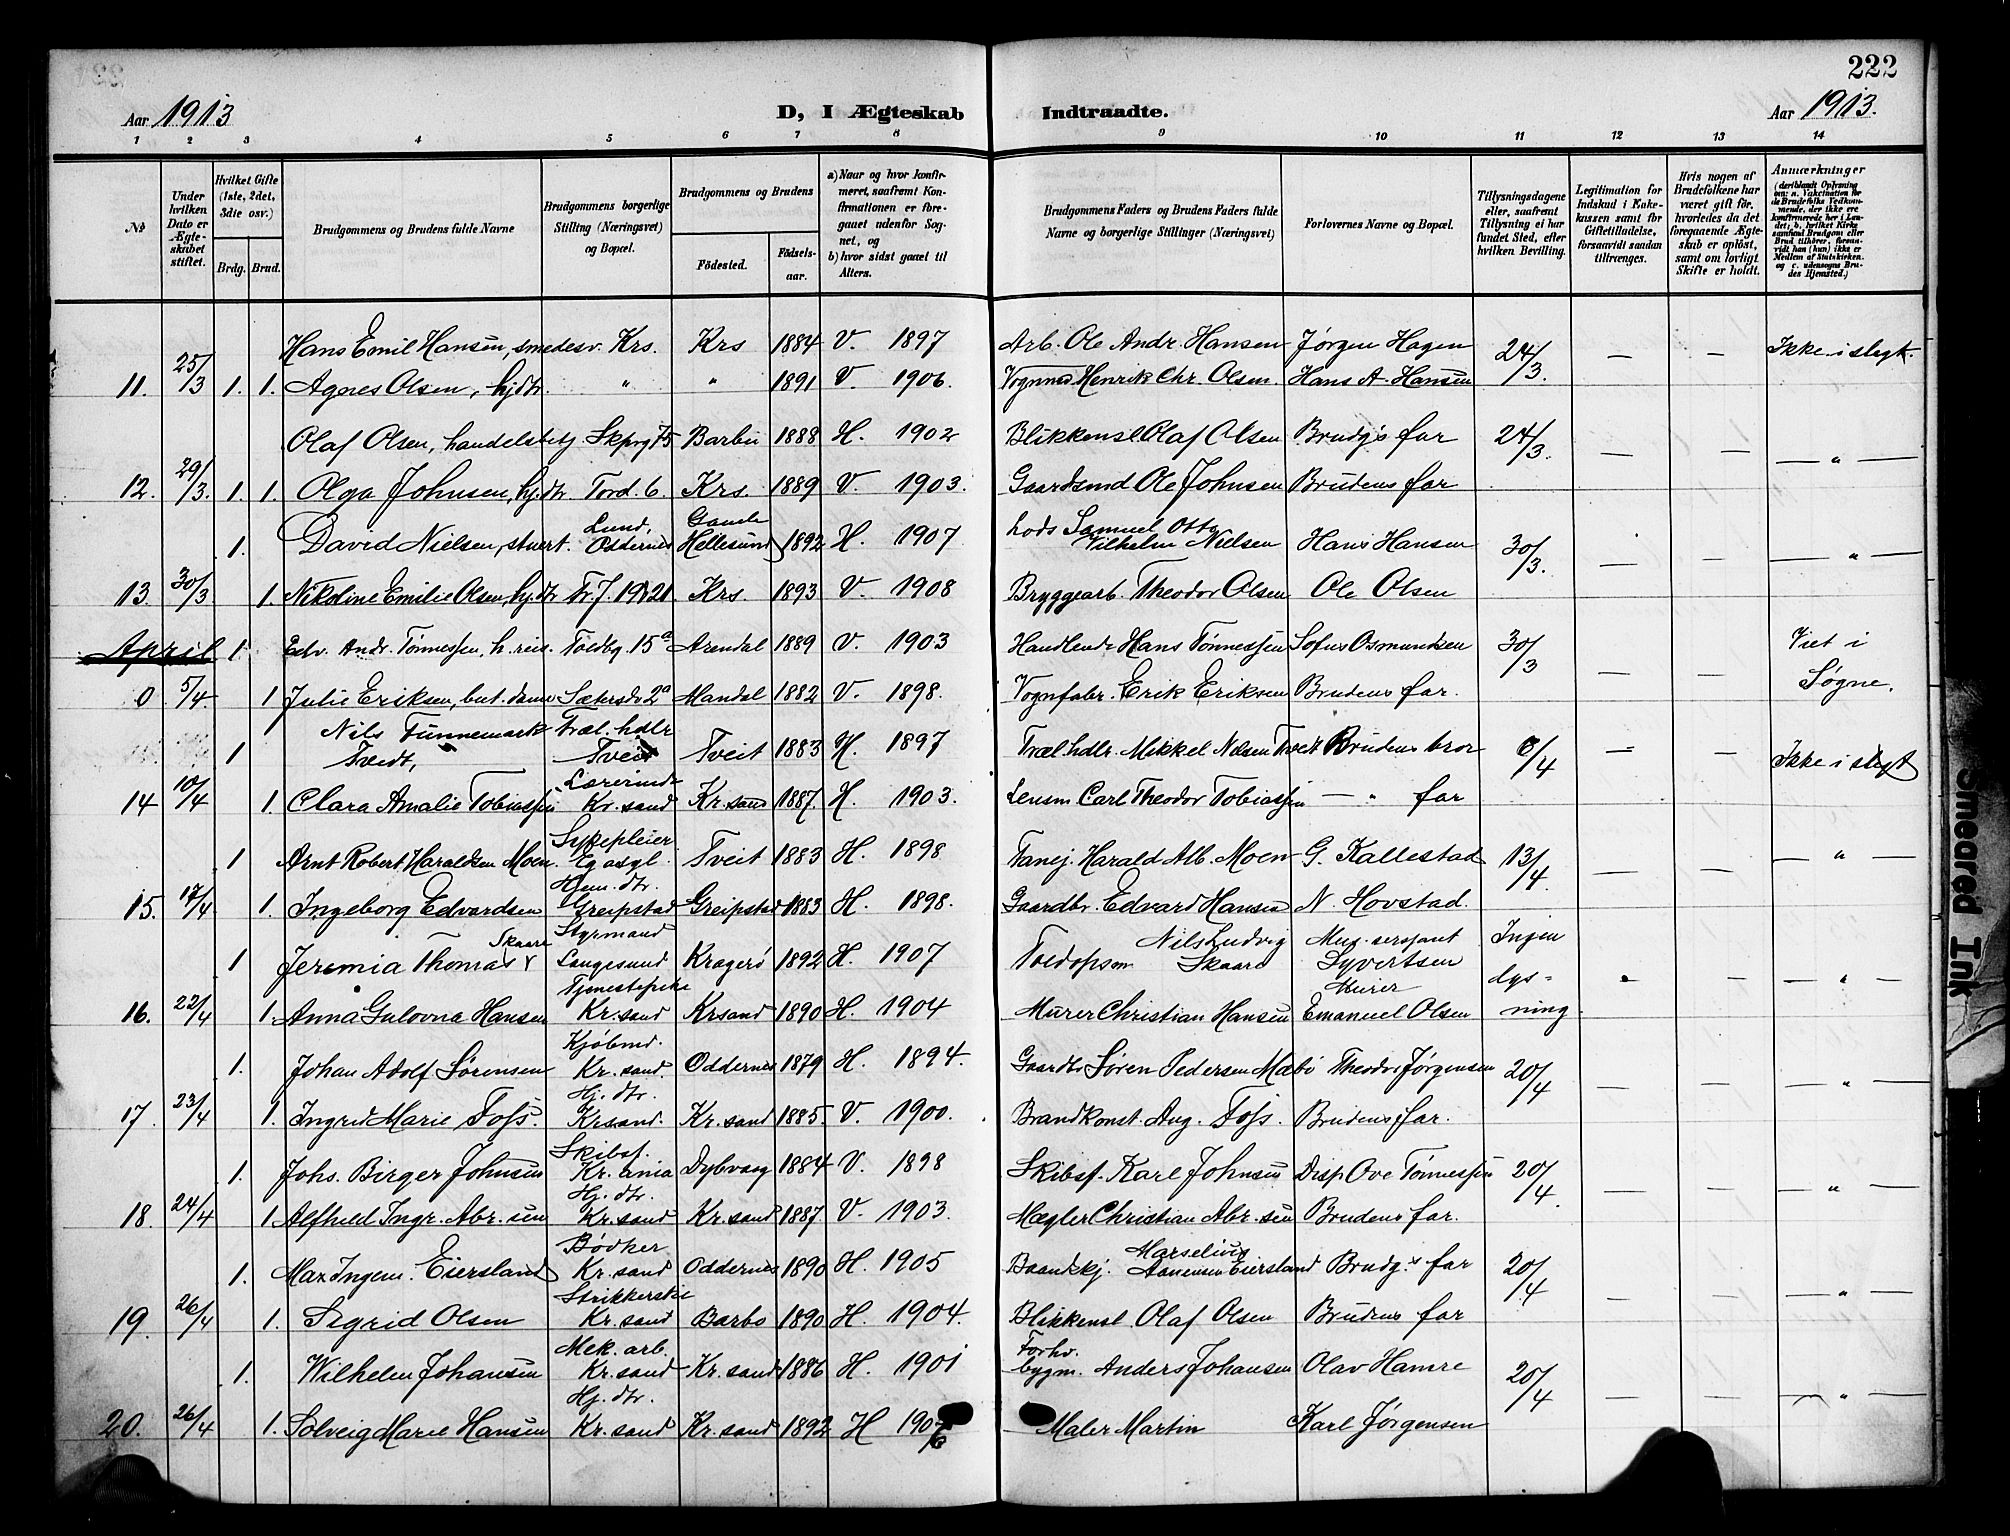 222
Aar 1913
D, I Ægteskab Indtraadte.
Aar 1913.
1 2 3 4 5 6 7 8 9 10 11 12 13 14
№
Under hvilken Dato er Ægteskabet stiftet.
Hvilket Gifte (1ste, 2det, 3die osv.)
Brdg. Brud.
Brudgommens og Brudens fulde Navne
Brudgommens borgerlige Stilling (Næringsvei) og Bopæl.
Brudgommens og Brudens
Fødested. Fødselsaar.
a) Naar og hvor konfirmeret, saafremt Konfirmationen er foregaaet udenfor Sognet, og
b) hvor sidst gaaet til Alters.
Brudgommens Faders og Brudens Faders fulde Navne og borgerlige Stillinger (Næringsvei)
Forlovernes Navne og Bopæl.
Tillysningsdagene eller, saafremt Tillysning ei har fundet Sted, efter hvilken Bevilling.
Legitimation for Indskud i Enkekassen samt for Giftetilladelse, forsaavidt saadan tiltrænges.
Hvis nogen af Brudefolkene har været gift før, hvorledes da det foregaaende Ægteskab er opløst, samt om lovligt Skifte er holdt.
Anmærkninger
Hans Emil Hansen, smedesv. Krs. Krs 1884 V. 1897 Arb. Ole Andr. Hansen Jørgen Hagen 24/3. — — Ikke i slegt.
11. 25/3 1. 1. Agnes Olsen, hjdtr. " " 1891 V. 1906. Vognm Henrik Chr. Olsen. Hans A. Hansen
Olaf Olsen, handelsbetj Skprg 75 Barbu 1888 H. 1902 Blikkensl. Olaf Olsen Brudg's far 24/3. — — — " —
12. 29/3. 1. 1. Olga Johnsen, hj.dtr Tord. 6. Krs. 1889 V. 1903. Gaardsmd Ole Johnsen Brudens far
1. David Nielsen, stuert. Lund, Oddernes Gamle Hellesund 1892 H. 1907 Lods Samuel Otto Vilhelm Nielsen Hans Hansen 30/3. — — — " —
13. 30/3 1. Nikoline Emilie Olsen, hj.dtr Tr. J. 19 21 Krs. 1893 V. 1908 Bryggearb. Theodor Olsen Ole Olsen
April 1. Edv. Andr. Tønnessen, h. reis. Toldbg. 15a Arendal 1889 V. 1903 Handlende Hans Tønnessen Sofus Osmundsen 30/3 — — Viet i Søgne.
0 5/4 1 Julie Eriksen, but. dame Sætersdv 2a Mandal 1882 V. 1898. Vognfabr. Erik Eriksen Brudens far.
1 Nils Tunnemark Tveidt, Træl. hdlr Tveit Tveit 1883 H. 1897 Træl.hdlr. Mikkel Nilsen Tveit Brudens bror 6/4 — — Ikke i slegt
14 10/4 1. Clara Amalie Tobiassen Lærerinde Kr. sand Kr. sand 1887. H. 1903. Lensm Carl Theodor Tobiassen — " far
1 Arnt Robert Haraldsen Moen. Sykepleier Eg asyl. Tveit 1883 H. 1898 Harald Alb. Moen G. Kallestad 13/4. — — — " —
15. 17/4 1. Ingeborg Edvardsen Hjem. dtr. Greipstad Greipstad 1883 H. 1898. Gaardbr. Edvard Hansen N. Hovstad.
1 Jeremia Thomas Skaare Styrmand Langesund Kragerø 1892 H. 1907 Toldopsm Nils Ludvig Skaare Mus. sersjant Syvertsen Ingen lysning — — " —
16. 22/4 1. Anna Gulovna Hansen Tjenestepike Kr. sand Krsand 1890 H. 1904 Murer Christian Hansen Murer Emanuel Olsen
1. Johan Adolf Sørensen Kjøbmd. Kr. sand. Oddernes 1879 H. 1894. Gaardbr Søren Pedersen Mæbø Theodor Jørgensen 20/4 — — — " —
17. 23/4 1. Ingrid Marie Foss. Hj. dtr. Krsand. Kr. sand 1885. V. 1900. Brandkonst. Aug. Foss. Brudens far.
1. Johs. Birger Johnsen Skibsf. Kr. ania Dybvaag 1884 V. 1898 Skibsf. Karl Johnsen Disp Ove Tønnessen 20/4. — — — " —
18. 24/4 1. Alfhild Ingr. Abr. sen Hj. dtr. Kr. sand Kr. sand 1887 V. 1903. Mægler Christian Abr. sen Brudens far.
1. Max Ingem. Eiersland Bødker Kr. sand Oddernes 1890 H. 1905 Baandskj. Marselius Aanensen Eiersland Brudg.s far 20/4 — — — " —
19. 26/4 1. Sigrid Olsen Strikkerske Kr. sand Barbo 1890 H. 1904. Blikkensl. Olaf Olsen Brudens far
1. Wilhelm Johansen Mek. arb. Kr. sand Kr. sand 1886 H. 1901 Forhv. bygm. Anders Johansen Olav Hamre 20/4 — — — " —
20. 26/4 1. Solveig Marie Hansen Hj. dtr. Kr. sand Kr. sand 1892 H 1907 Maler Martin Karl Jørgensen
Smeared Ink